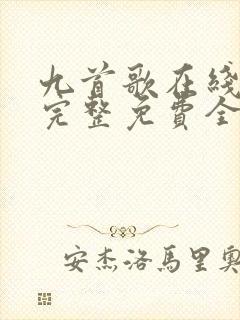 九首歌在綫
完整免費全
安杰洛馬里奧